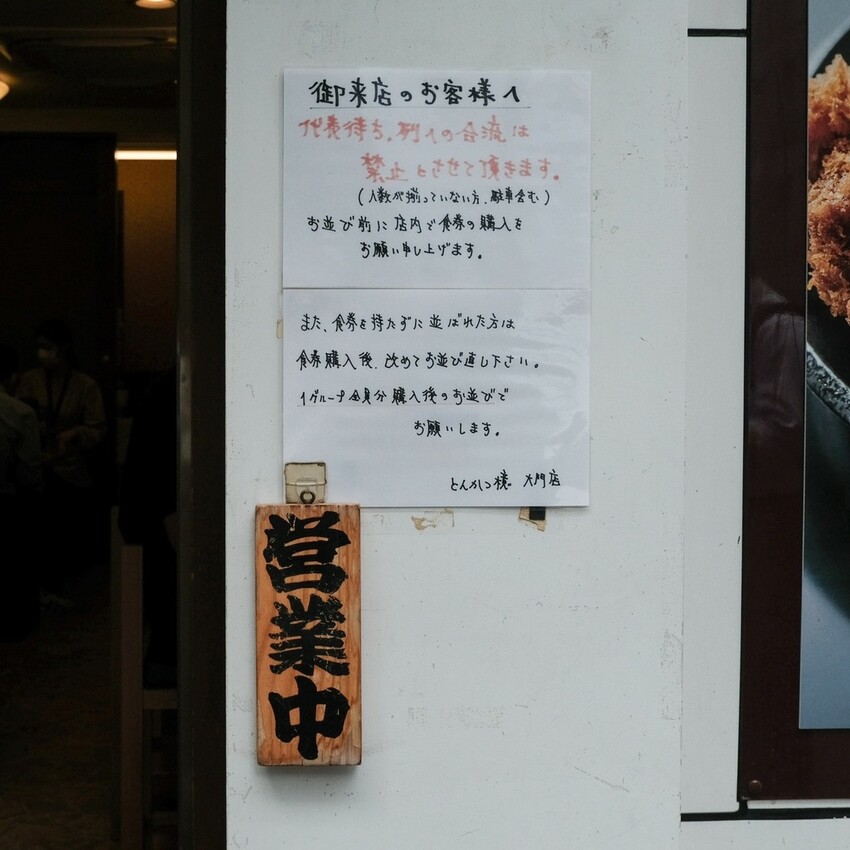 御来店のお客様へ
代表待ち、列への合流は
禁止とさせて頂きます。
（人数が揃っていない方、駐車含む）
お並び前に店内で食券の購入を
お願い申し上げます。
また、食券を持たずに並ばれた方は
食券購入後、改めてお並び直し下さい。
1グループ全員分購入後のお並びで
お願いします。
とんかつ檍 大門店
営業中